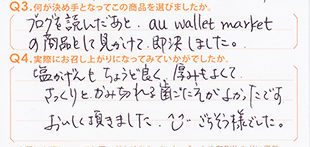 Q3.何が決め手となってこの商品を選びましたか。
ブログを読んだあと、au wallet market
の商品として見かけて、即決しました。
Q4.実際にお召し上がりになってみていかがでしたか。
塩かげんもちょうど良く、厚みもよくて
さっくりとかみ切れる歯ごたえがよかったです
おいしく頂きました。ごちそう様でした。